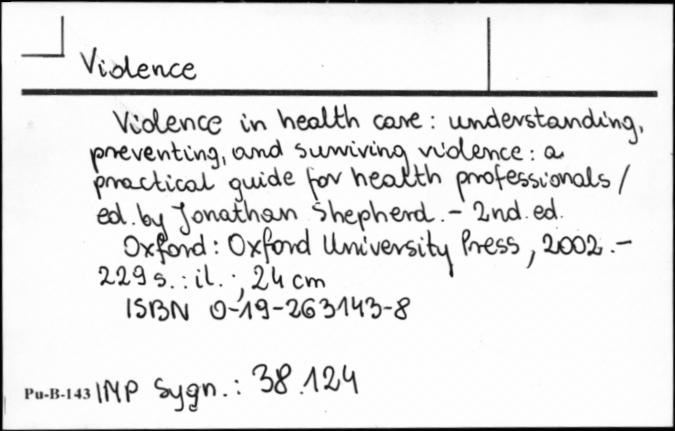 Violence
Violence in health care : understanding,
preventing, and surviving violence : a
practical guide for health professionals /
ed. by Jonathan Shepherd. - 2nd. ed.
Oxford : Oxford University Press, 2002. -
229 s. : il. ; 24 cm
ISBN 0-19-263143-8
Pu-B-143 IMP Sygn. : 38.124